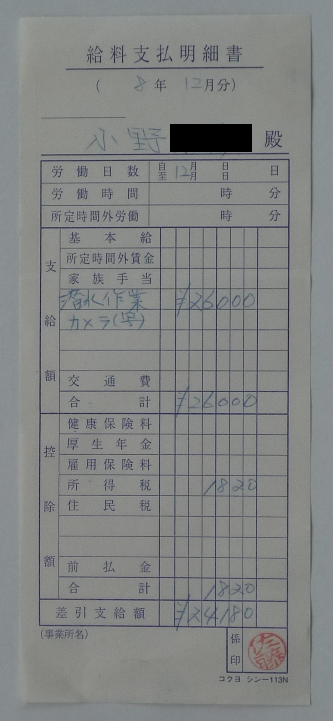 給料支払明細書
( 8 年 12 月分)
小野 殿
労働日数 自至 12月月 日日 日
労働時間 時 分
所定時間外労働 時 分
支給額
基本給
所定時間外賃金
家族手当
潜水作業 ¥26000
カメラ(写)
交通費
合計 ¥26000
控除額
健康保険料
厚生年金
雇用保険料
所得税 1820
住民税
前払金
合計 1820
差引支給額 ¥24180
(事業所名) 係印
コクヨ シン-113N